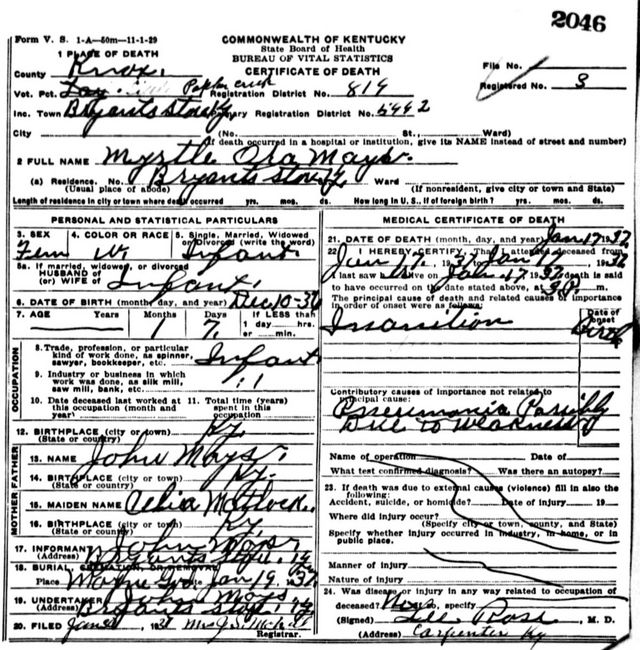 2046
Form V. S. 1-A—50m—11-1-29
COMMONWEALTH OF KENTUCKY
State Board of Health
BUREAU OF VITAL STATISTICS
CERTIFICATE OF DEATH
1 PLACE OF DEATH
County Knox.
File No.
Registered No. 3
Vot. Pct. Registration District No. 819
Inc. Town Bryants Store Ky Primary Registration District No. 5992
City (No. St. Ward)
(If death occurred in a hospital or institution, give its NAME instead of street and number)
2 FULL NAME Myrtle Ora Mays.
(a) Residence. No. Bryants Store Ky. Ward
(Usual place of abode) (If nonresident, give city or town and State)
Length of residence in city or town where death occurred yrs. mos. ds. How long in U. S., if of foreign birth? yrs. mos. ds.
PERSONAL AND STATISTICAL PARTICULARS
3. SEX 4. COLOR OR RACE 5. Single, Married, Widowed
or Divorced (write the word)
Fem W Infant
5a. If married, widowed, or divorced
HUSBAND of
(or) WIFE of Infant.
6. DATE OF BIRTH (month, day, and year) Dec 10-36
7. AGE Years Months Days If LESS than
1 day hrs.
or min.
1 7
OCCUPATION
8. Trade, profession, or particular
kind of work done, as spinner,
sawyer, bookkeeper, etc. Infant
9. Industry or business in which
work was done, as silk mill,
saw mill, bank, etc.
10. Date deceased last worked at
this occupation (month and
year)
11. Total time (years)
spent in this
occupation
12. BIRTHPLACE (city or town) Ky.
(State or country)
MOTHER FATHER
13. NAME John Mays.
14. BIRTHPLACE (city or town) Ky.
(State or country)
15. MAIDEN NAME
16. BIRTHPLACE (city or town) Ky.
(State or country)
17. INFORMANT John Mays
(Address) Bryants Store Ky
18. BURIAL, CREMATION, OR REMOVAL
Place Date Jan 19, 1937
19. UNDERTAKER John Mays.
(Address) Bryants Store Ky
20. FILED 1937
Registrar.
MEDICAL CERTIFICATE OF DEATH
21. DATE OF DEATH (month, day, and year) Jan 17 1937
22. I HEREBY CERTIFY, That I attended deceased from
Jan 16, 1937, to Jan 17, 1937
I last saw alive on Jan 17 1937 death is said
to have occurred on the date stated above, at m.
The principal cause of death and related causes of importance
in order of onset were as follows:
Date of
onset
Inanition Birth
Contributory causes of importance not related to
principal cause:
Pneumonia Possibly
Due to Weakness
Name of operation Date of
What test confirmed diagnosis? Was there an autopsy?
23. If death was due to external causes (violence) fill in also the
following:
Accident, suicide, or homicide? Date of injury 19
Where did injury occur?
(Specify city or town, county, and State)
Specify whether injury occurred in industry, in home, or in
public place.
Manner of injury
Nature of injury
24. Was disease or injury in any way related to occupation of
deceased? If so, specify
(Signed) Lee Ross, M. D.
(Address) Carpenter Ky